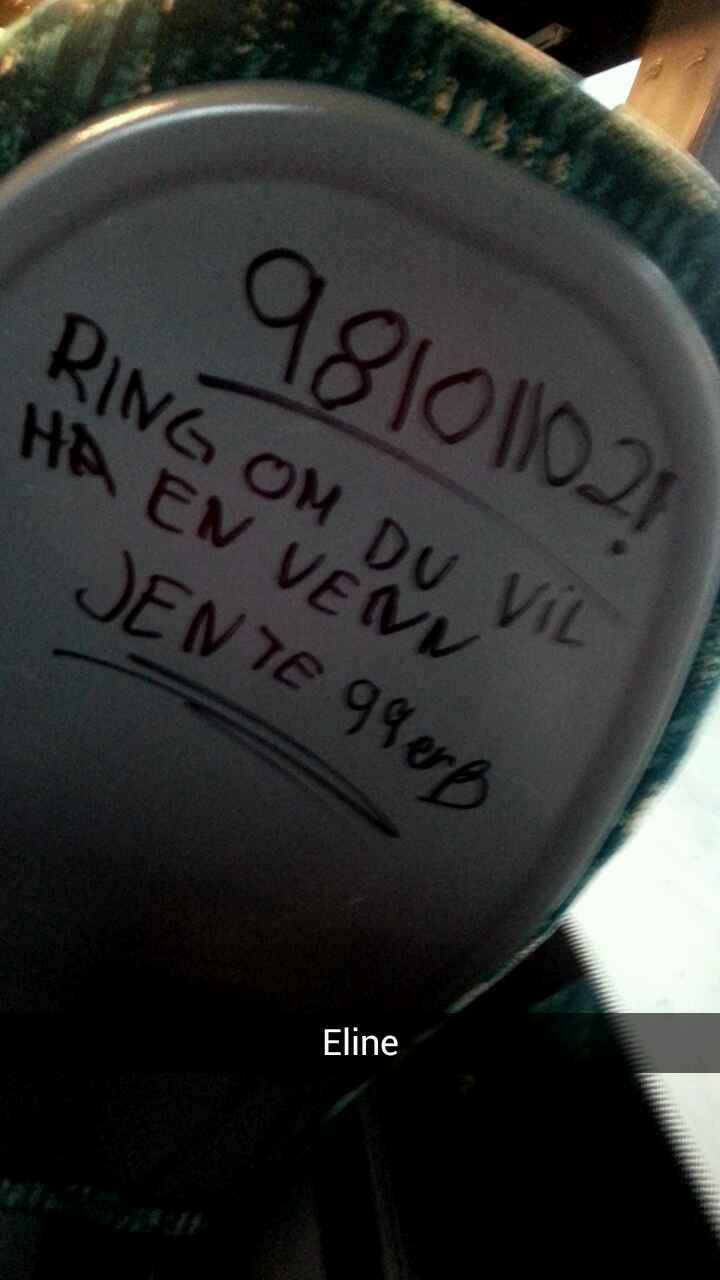 98101102!
RING OM DU VIL
HA EN VENN
JENTE 99erB
Eline